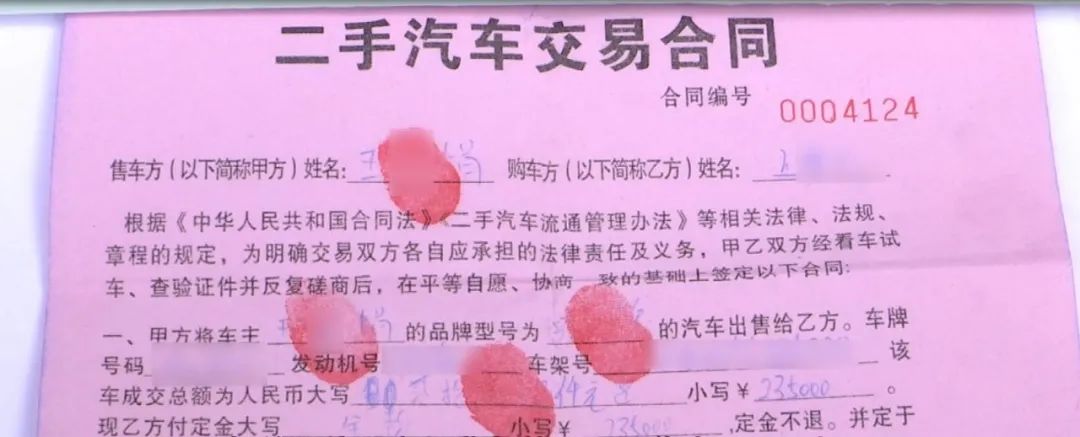 二手汽车交易合同
合同编号 0004124
售车方（以下简称甲方）姓名： 购车方（以下简称乙方）姓名：
根据《中华人民共和国合同法》《二手汽车流通管理办法》等相关法律、法规、
章程的规定，为明确交易双方各自应承担的法律责任及义务，甲乙双方经看车试
车、查验证件并反复磋商后，在平等自愿、协商一致的基础上签定以下合同：
一、甲方将车主 的品牌型号为 的汽车出售给乙方。车牌
号码 发动机号 车架号 该
车成交总额为人民币大写 小写￥235000。
现乙方付定金大写 小写￥235000,定金不退。并定于